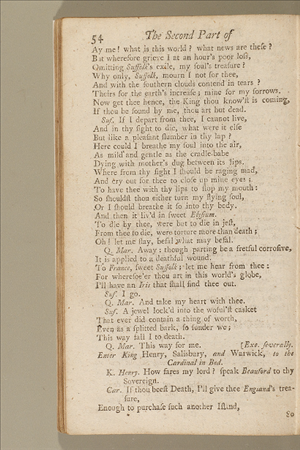 54 The Second Part of
Ay me! what is this world? what news are these?
But wherefore grieve I at an hour's poor loss,
Omitting Suffolk's exile, my soul's treasure?
Why only, Suffolk, mourn I not for thee,
And with the southern clouds contend in tears?
Theirs for the earth's increase; mine for my sorrows.
Now get thee hence, the King thou know'st is coming,
If thou be found by me, thou art but dead.
Suf. If I depart from thee, I cannot live,
And in thy sight to die, what were it else
But like a pleasant slumber in thy lap?
Here could I breathe my soul into the air,
As mild and gentle as the cradle-babe
Dying with mother's dug between its lips.
Where from thy sight I should be raging mad,
And cry out for thee to close up mine eyes:
To have thee with thy lips to stop my mouth:
So shouldst thou either turn my flying soul,
Or I should breathe it so into thy body.
And then it liv'd in sweet Elysium.
To die by thee, were but to die in jest,
From thee to die, were torture more than death;
Oh! let me stay, befal what may befal.
Q. Mar. Away: though parting be a fretful corrosive,
It is applied to a deathful wound.
To France, sweet Suffolk: let me hear from thee:
For wheresoe'er thou art in this world's globe,
I'll have an Iris that shall find thee out.
Suf. I go.
Q. Mar. And take my heart with thee.
Suf. A jewel lock'd into the woful'st casket
That ever did contain a thing of worth,
Even as a splitted bark, so sunder we;
This way fall I to death.
Q. Mar. This way for me. [Exe. severally.
Enter King Henry, Salisbury, and Warwick, to the
Cardinal in Bed.
K. Henry. How fares my lord? speak Beauford to thy
Sovereign.
Car. If thou beest Death, I'll give thee England's trea-
sure,
Enough to purchase such another Island,
So